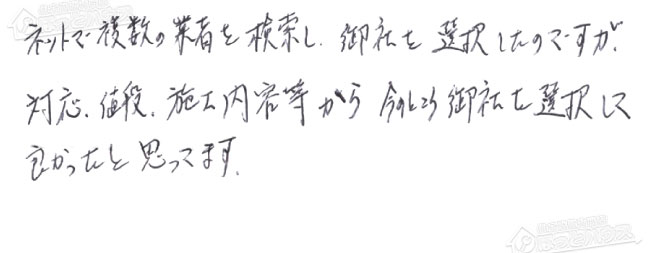 ネットで複数の業者を検索し、御社を選択したのですが、
対応、値段、施工内容等から今のところ御社を選択して
良かったと思ってます。